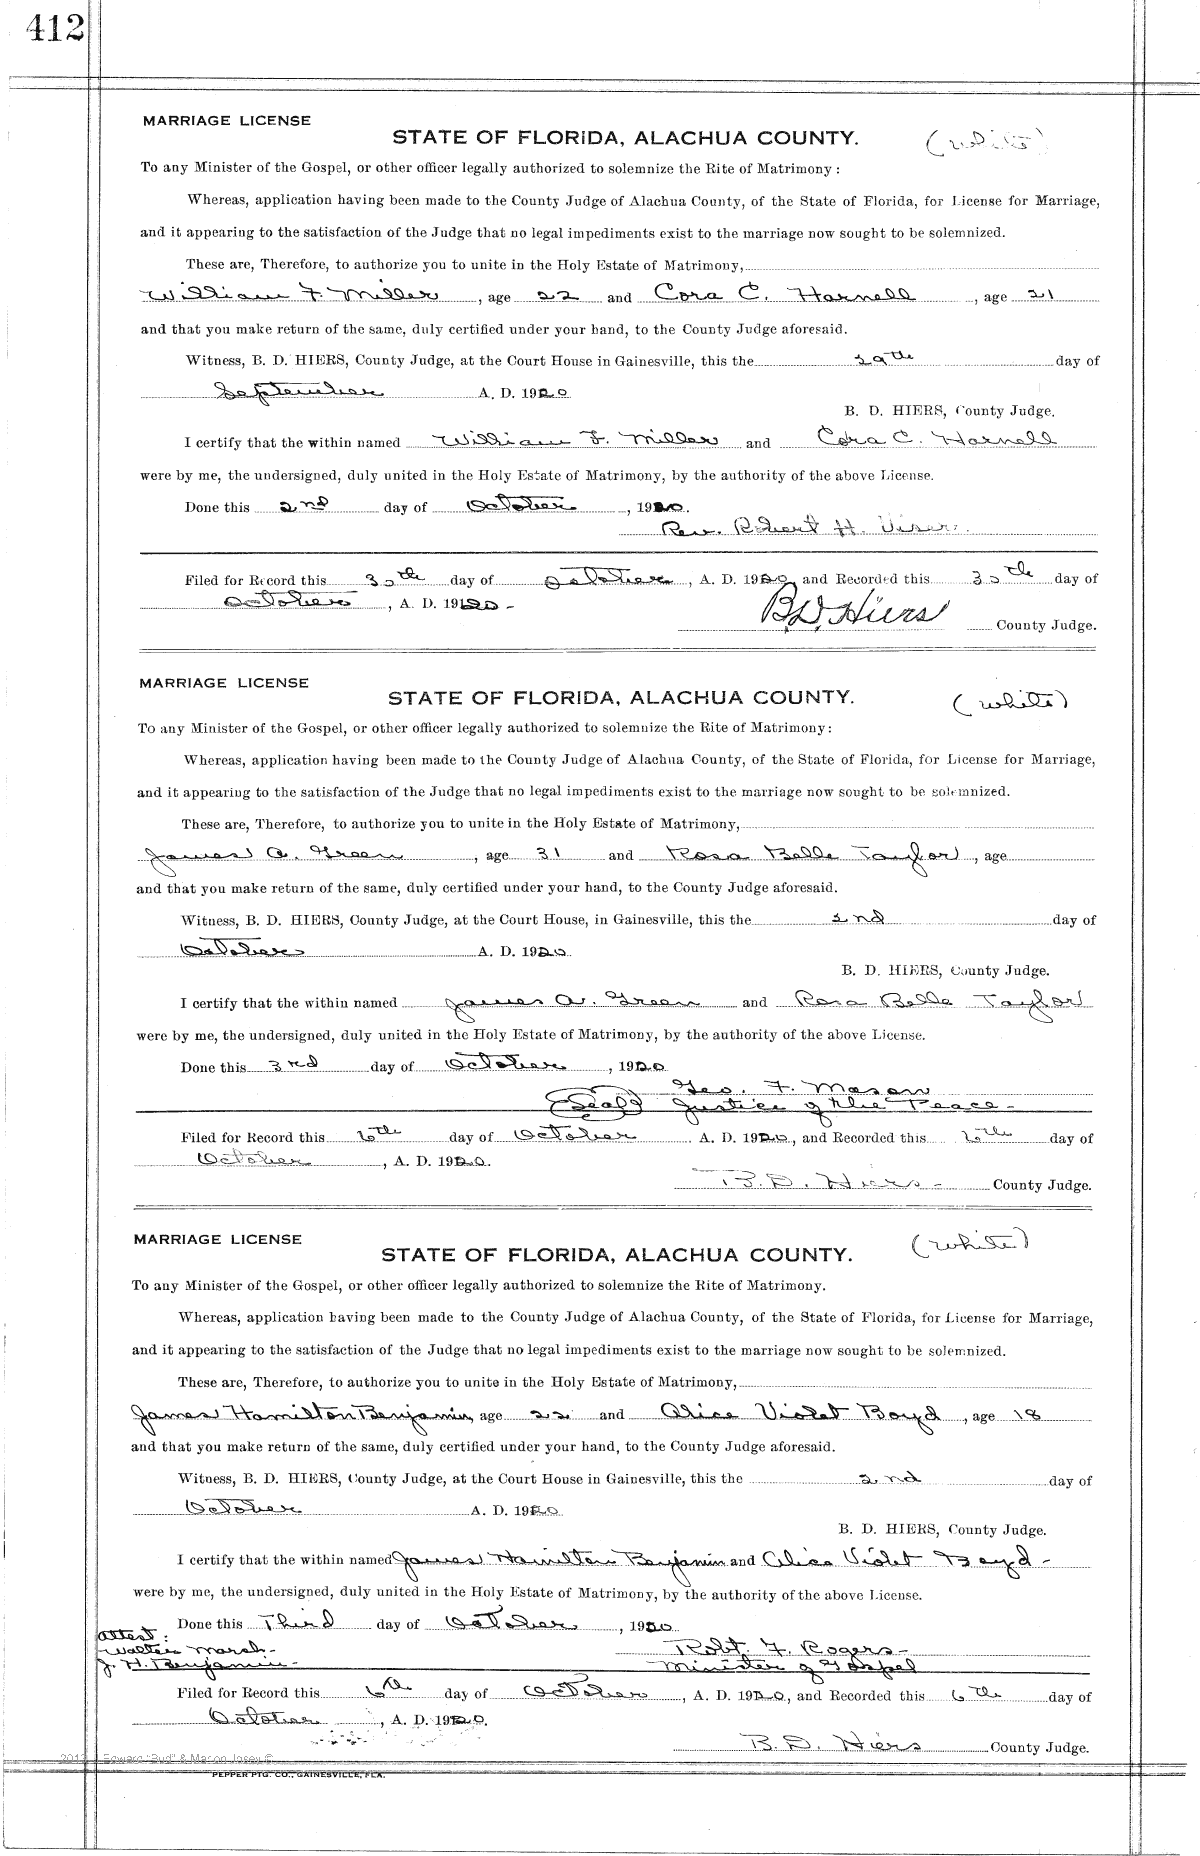 412
MARRIAGE LICENSE
STATE OF FLORIDA, ALACHUA COUNTY. (white)
To any Minister of the Gospel, or other officer legally authorized to solemnize the Rite of Matrimony :
Whereas, application having been made to the County Judge of Alachua County, of the State of Florida, for License for Marriage,
and it appearing to the satisfaction of the Judge that no legal impediments exist to the marriage now sought to be solemnized.
These are, Therefore, to authorize you to unite in the Holy Estate of Matrimony,
William F. Miller, age 22 and Cora C. Harnell, age 21
and that you make return of the same, duly certified under your hand, to the County Judge aforesaid.
Witness, B. D. HIERS, County Judge, at the Court House in Gainesville, this the 29th day of
September A. D. 1920
B. D. HIERS, County Judge.
I certify that the within named William F. Miller and Cora C. Harnell
were by me, the undersigned, duly united in the Holy Estate of Matrimony, by the authority of the above License.
Done this 2nd day of October, 1920.
Rev. Robert H.
Filed for Record this 30th day of October, A. D. 1920, and Recorded this 30th day of
October, A. D. 1920-
B.D. Hiers County Judge.
MARRIAGE LICENSE
STATE OF FLORIDA, ALACHUA COUNTY. (white)
To any Minister of the Gospel, or other officer legally authorized to solemnize the Rite of Matrimony:
Whereas, application having been made to the County Judge of Alachua County, of the State of Florida, for License for Marriage,
and it appearing to the satisfaction of the Judge that no legal impediments exist to the marriage now sought to be solemnized.
These are, Therefore, to authorize you to unite in the Holy Estate of Matrimony,
James A. Green, age 31 and Rosa Belle Taylor, age
and that you make return of the same, duly certified under your hand, to the County Judge aforesaid.
Witness, B. D. HIERS, County Judge, at the Court House, in Gainesville, this the 2nd day of
October A. D. 1920
B. D. HIERS, County Judge.
I certify that the within named James A. Green and Rosa Belle Taylor
were by me, the undersigned, duly united in the Holy Estate of Matrimony, by the authority of the above License.
Done this 3rd day of October, 1920
Geo. F. Mason
(Seal) Justice of the Peace-
Filed for Record this 6th day of October A. D. 1920, and Recorded this 6th day of
October, A. D. 1920.
B. D. Hiers- County Judge.
MARRIAGE LICENSE
STATE OF FLORIDA, ALACHUA COUNTY. (white)
To any Minister of the Gospel, or other officer legally authorized to solemnize the Rite of Matrimony.
Whereas, application having been made to the County Judge of Alachua County, of the State of Florida, for License for Marriage,
and it appearing to the satisfaction of the Judge that no legal impediments exist to the marriage now sought to be solemnized.
These are, Therefore, to authorize you to unite in the Holy Estate of Matrimony,
James Hamilton Benjamin, age 22 and Alice Violet Boyd, age 18
and that you make return of the same, duly certified under your hand, to the County Judge aforesaid.
Witness, B. D. HIERS, County Judge, at the Court House in Gainesville, this the 2nd day of
October A. D. 1920
B. D. HIERS, County Judge.
I certify that the within named James Hamilton Benjamin and Alice Violet Boyd-
were by me, the undersigned, duly united in the Holy Estate of Matrimony, by the authority of the above License.
Done this Third day of October, 1920
Attest:
Walter Marsh- Robt. F. Rogers-
J. H. Benjamin- Minister of Gospel
Filed for Record this 6th day of October, A. D. 1920, and Recorded this 6th day of
October, A. D. 1920.
B. D. Hiers County Judge.
Edward "Bud" & Marion Josey ©
PEPPER PTG. CO., GAINESVILLE, FLA.